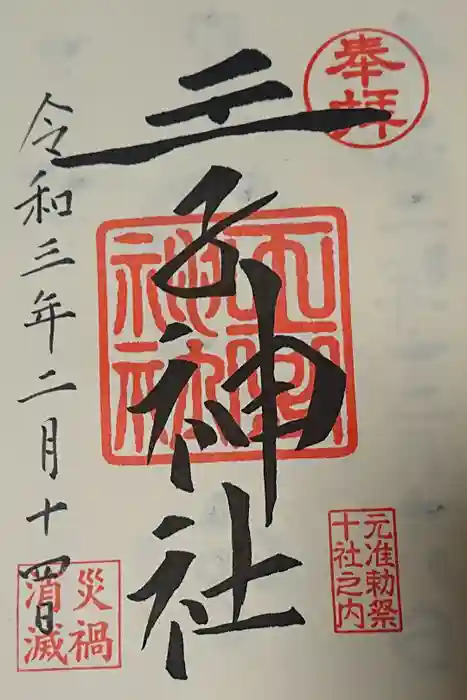 奉拝
王子神社
神社
元准勅祭
十社之内
令和三年二月十四日
災禍
消滅